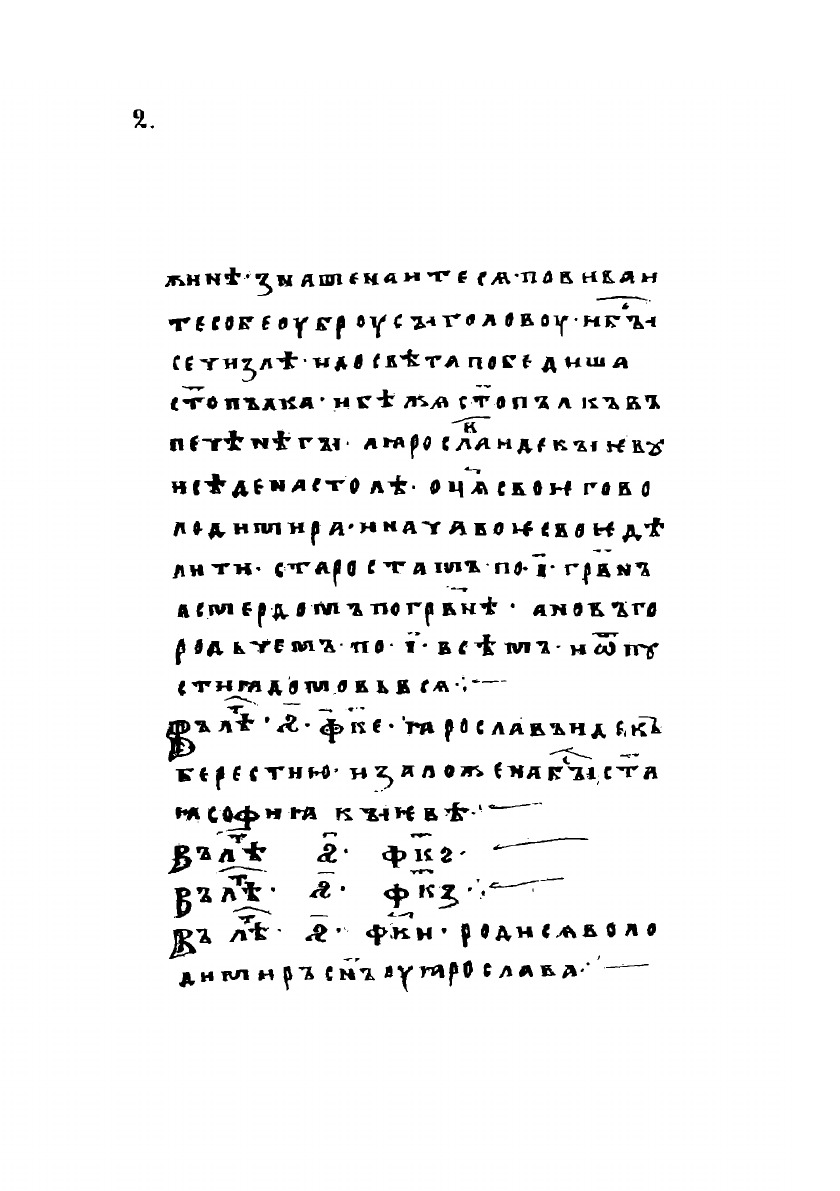 2.
жинѣ · знаменаитесѧ · повиваи
тесобеоуброусъıголовоу · ибъıⷭ҇
сеүизлѣ · идосвѣтапобедиша
ст҃опълка · ибѣжаст҃опълкъвъ
пеүѣнѣгъı · аꙗрославⷦ҇идекъıѥвꙋ
исѣденастолѣ · оц҃ѧсвоѥгово
лодимира · инаүавоѥсвоѥдѣ
лити · старостамъ · по · і҃ · грв҃нъ
асмердомъпогрв҃нѣ · ановъго
родьүемъ · по · і҃ · всѣмъ · иѿпꙋ
стиꙗдомовьвсѧ ⁘
Въ лѣⷮ · ҂ѕ҃ · ф҃к҃е · ꙗрославъидекъ
берестию · изаложенабъıⷭ҇ст҃а
ꙗсофиꙗ къıѥвѣ ·
Въ лѣⷮ ҂ѕ҃ · фк҃ѕ ·
Въ лѣⷮ · ҂ѕ҃ · фк҃з ·
Въ лѣⷮ · ҂ѕ҃ · фк҃и · родисѧволо
димиръсн҃ъоуꙗрослава ·